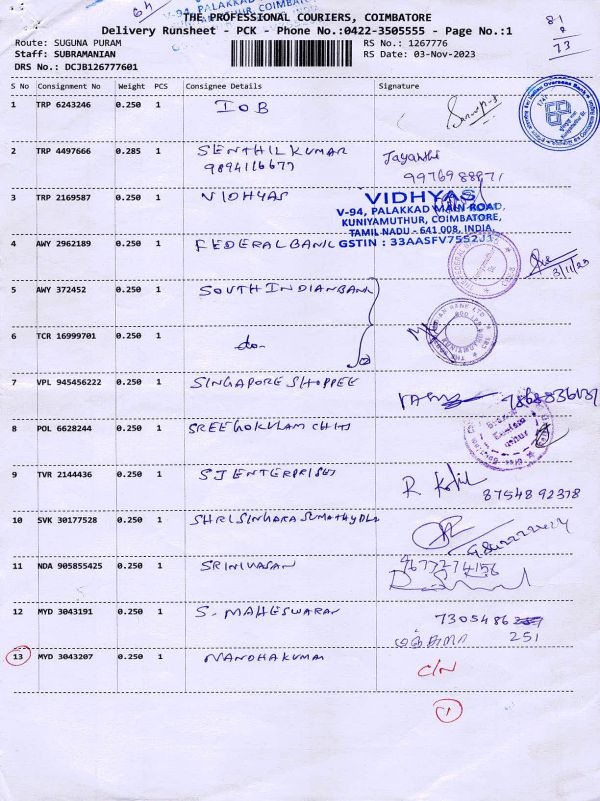 64
V-94, PALAKKAD
KUNIYAMUTHUR, COIMBATORE
THE PROFESSIONAL COURIERS, COIMBATORE
Delivery Runsheet - PCK - Phone No.:0422-3505555 - Page No.:1
Route: SUGUNA PURAM
RS No.: 1267776
Staff: SUBRAMANIAN
RS Date: 03-Nov-2023
DRS No.: DCJB126777601
81
8
73
S No Consignment No Weight PCS Consignee Details Signature
1 TRP 6243246 0.250 1 IOB
2 TRP 4497666 0.285 1 SENTHIL KUMAR Jayanthi
9894116677 9976988871
3 TRP 2169587 0.250 1 VIDHYAS
VIDHYAS
V-94, PALAKKAD MAIN ROAD,
KUNIYAMUTHUR, COIMBATORE,
TAMIL NADU - 641 008, INDIA.
GSTIN : 33AASFV7552J
4 AWY 2962189 0.250 1 FEDERAL BANK
3/11/23
5 AWY 372452 0.250 1 SOUTH INDIAN BANK
6 TCR 16999701 0.250 1 do-
7 VPL 945456222 0.250 1 SINGAPORE SHOPPEE
8 POL 6628244 0.250 1 SREE GOKULAM CHITS
9 TVR 2144436 0.250 1 SJ ENTERPRISES
87548 92378
10 SVK 30177528 0.250 1
11 NDA 905855425 0.250 1 SRINIVASAN 9677274156
12 MYD 3043191 0.250 1 S. MAHESWARAN 7305486
251
13 MYD 3043207 0.250 1 NANDHAKUMAR C/N
1